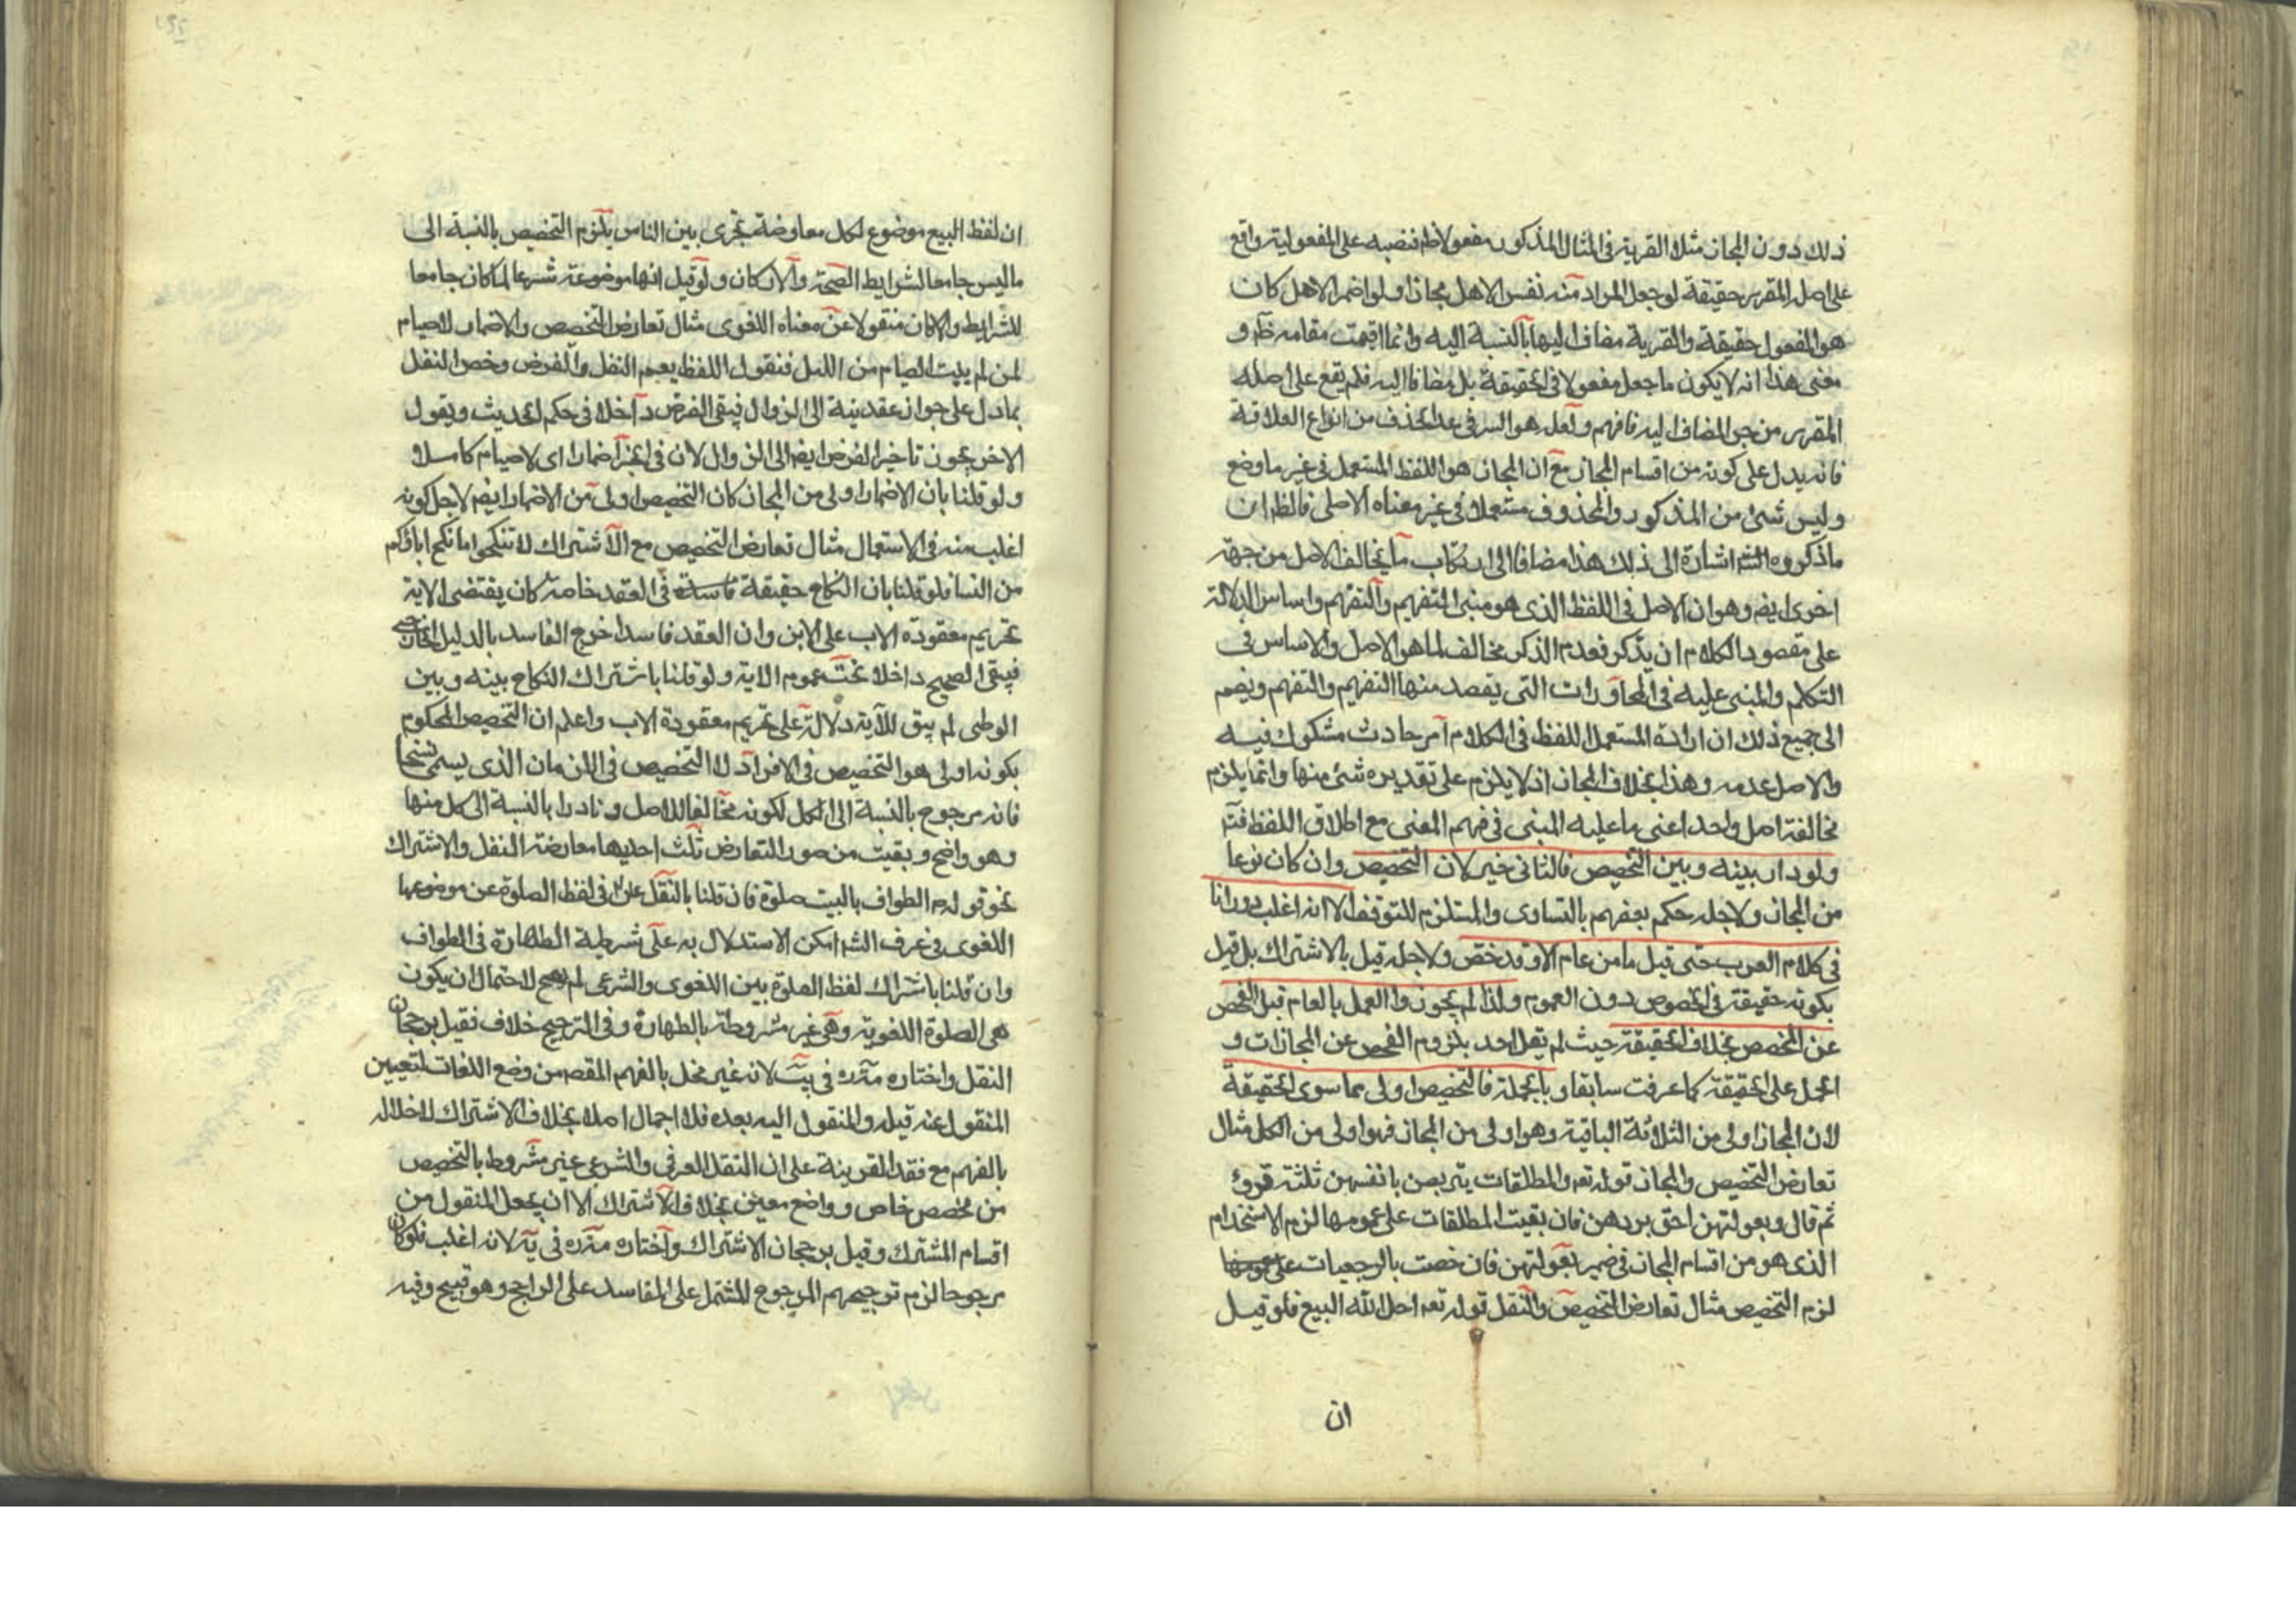 ذلك دون المجاز مثلا القرية فى المثال المذكور مفعولا ظم فنصبه على المفعولية واقع
على اصله المقرر حقيقة لو جعل المراد منه نفس الاهل مجازا ولو اضمر الاهل كان
هو المفعول حقيقة والقرية مضافا اليها بالنسبة اليه وانما اقيمت مقامه ظم و
معنى هذا انه لا يكون ما جعل مفعولا فى الحقيقة بل مضافا اليه فلم يقع على اصله
المقرر من جر المضاف اليه فافهم ولعل هو السر فى عد الحذف من انواع العلاقة
فانه يدل على كونه من اقسام المجاز مع ان المجاز هو اللفظ المستعمل فى غير ما وضع
وليس شئ من المذكور والمحذوف مستعملا فى غير معناه الاصلى فالظم ان
ما ذكروه اشارة الى ذلك هذا مضافا الى ارتكاب ما يخالف الاصل من جهة
اخرى ايضم وهو ان الاصل فى اللفظ الذى هو مبنى التفهيم والتفهم واساس الدلالة
على مقصود الكلام ان يذكر فعدم الذكر مخالف لما هو الاصل والاساس فى
التكلم والمبنى عليه فى المحاورات التى يقصد منها التفهيم والتفهم ويضم
الى جميع ذلك ان ارادة المستعمل اللفظ فى الكلام امر حادث مشكوك فيه
والاصل عدمه وهذا بخلاف المجاز اذ لا يلزم على تقديره شئ منها وانما يلزم
مخالفة اصل واحد اعنى ما عليه المبنى فى فهم المعنى مع اطلاق اللفظ فتم
ولو دار بينه وبين التخصيص فالثانى خير لان التخصيص وان كان نوعا
من المجاز ولاجله حكم بعضهم بالتساوى والمستلزم للتوقف الا انه اغلب دورانا
فى كلام العرب حتى قيل ما من عام الا وقد خص ولاجله قيل بالاشتراك بل قيل
بكونه حقيقة فى الخصوص دون العموم ولذا لم يجوزوا العمل بالعام قبل الفحص
عن المخصص بخلاف الحقيقة حيث لم يقل احد بلزوم الفحص عن المجازات و
الحمل على الحقيقة كما عرفت سابقا وبالجملة فالتخصيص اولى مما سوى الحقيقة
لان المجاز اولى من الثلاثة الباقية وهو اولى من المجاز فهو اولى من الكل مثال
تعارض التخصيص والمجاز قوله تعم والمطلقات يتربصن بانفسهن ثلثة قروء
ثم قال وبعولتهن احق بردهن فان بقيت المطلقات على عمومها لزم الاستخدام
الذى هو من اقسام المجاز فى ضمير بعولتهن فان خصت بالرجعيات
لزم التخصيص مثال تعارض التخصيص والنقل قوله تعم احل الله البيع فلو قيل
ان
ان لفظ البيع موضوع لكل معاوضة تجرى بين الناس يلزم التخصيص بالنسبة الى
ما ليس جامعا لشرايط الصحة والاركان ولو قيل انها موضوعة شرعا لما كان جامعا
للشرايط والاركان منقولا عن معناه اللغوى مثال تعارض التخصيص والاضمار لا صيام
لمن لم يبيت الصيام من الليل فنقول اللفظ يعم النفل والفرض وخص النفل
بما دل على جواز عقد نية الى الزوال فيبقى الفرض داخلا فى حكم الحديث ويقول
الاخر يجوز تاخير الفرض ايضم الى الزوال لان فى الخبر اضمارا اى لا صيام كاملا و
ولو قلنا بان الاضمار اولى من المجاز كان التخصيص اولى من الاضمار ايضم لاجل كونه
اغلب منه فى الاستعمال مثال تعارض التخصيص مع الاشتراك لا تنكحوا ما نكح اباؤكم
من النسا فلو قلنا بان النكاح حقيقة فى العقد خاصة كان يقتضى الاية
تحريم معقودة الاب على الابن وان العقد فاسدا خرج الفاسد بالدليل الخارجى
فيبقى الصحيح داخلا تحت عموم الاية ولو قلنا باشتراك النكاح بينه وبين
الوطى لم يبق للآية دلالة على تحريم معقودة الاب واعلم ان التخصيص المحكوم
بكونه اولى هو التخصيص فى الافراد لا التخصيص فى الازمان الذى يسمى نسخا
فانه مرجوح بالنسبة الى الكل لكونه مخالفا للاصل ونادرا بالنسبة الى كل منها
وهو واضح وبقيت من صور التعارض ثلث احديها معارضة النقل والاشتراك
نحو قوله م الطواف بالبيت صلوة فان قلنا بالنقل فى لفظ الصلوة عن موضوعها
اللغوى فى عرف الشم امكن الاستدلال به على شرطية الطهارة فى الطواف
وان قلنا باشتراك لفظ الصلوة بين اللغوى والشرعى لم يصح لاحتمال ان يكون
هى الصلوة اللغوية وهى غير مشروطة بالطهارة وفى الترجيح خلاف فقيل برجحان
النقل واختاره فى يب لانه غير مخل بالفهم المقصم من وضع اللغات لتعيين
المنقول عنه قبله والمنقول اليه بعده فلا اجمال اصلا بخلاف الاشتراك لاخلاله
بالفهم مع فقد القرينة على ان النقل العرفى والشرعى غير مشروط بالتخصيص
من مخصص خاص وواضع معين بخلاف الاشتراك الا ان يجعل المنقول من
اقسام المشترك وقيل برجحان الاشتراك واختاره فى يه لانه اغلب فلو كان
مرجوحا لزم ترجيحهم المرجوح المشتمل على المفاسد على الراجح وهو قبيح وفيه